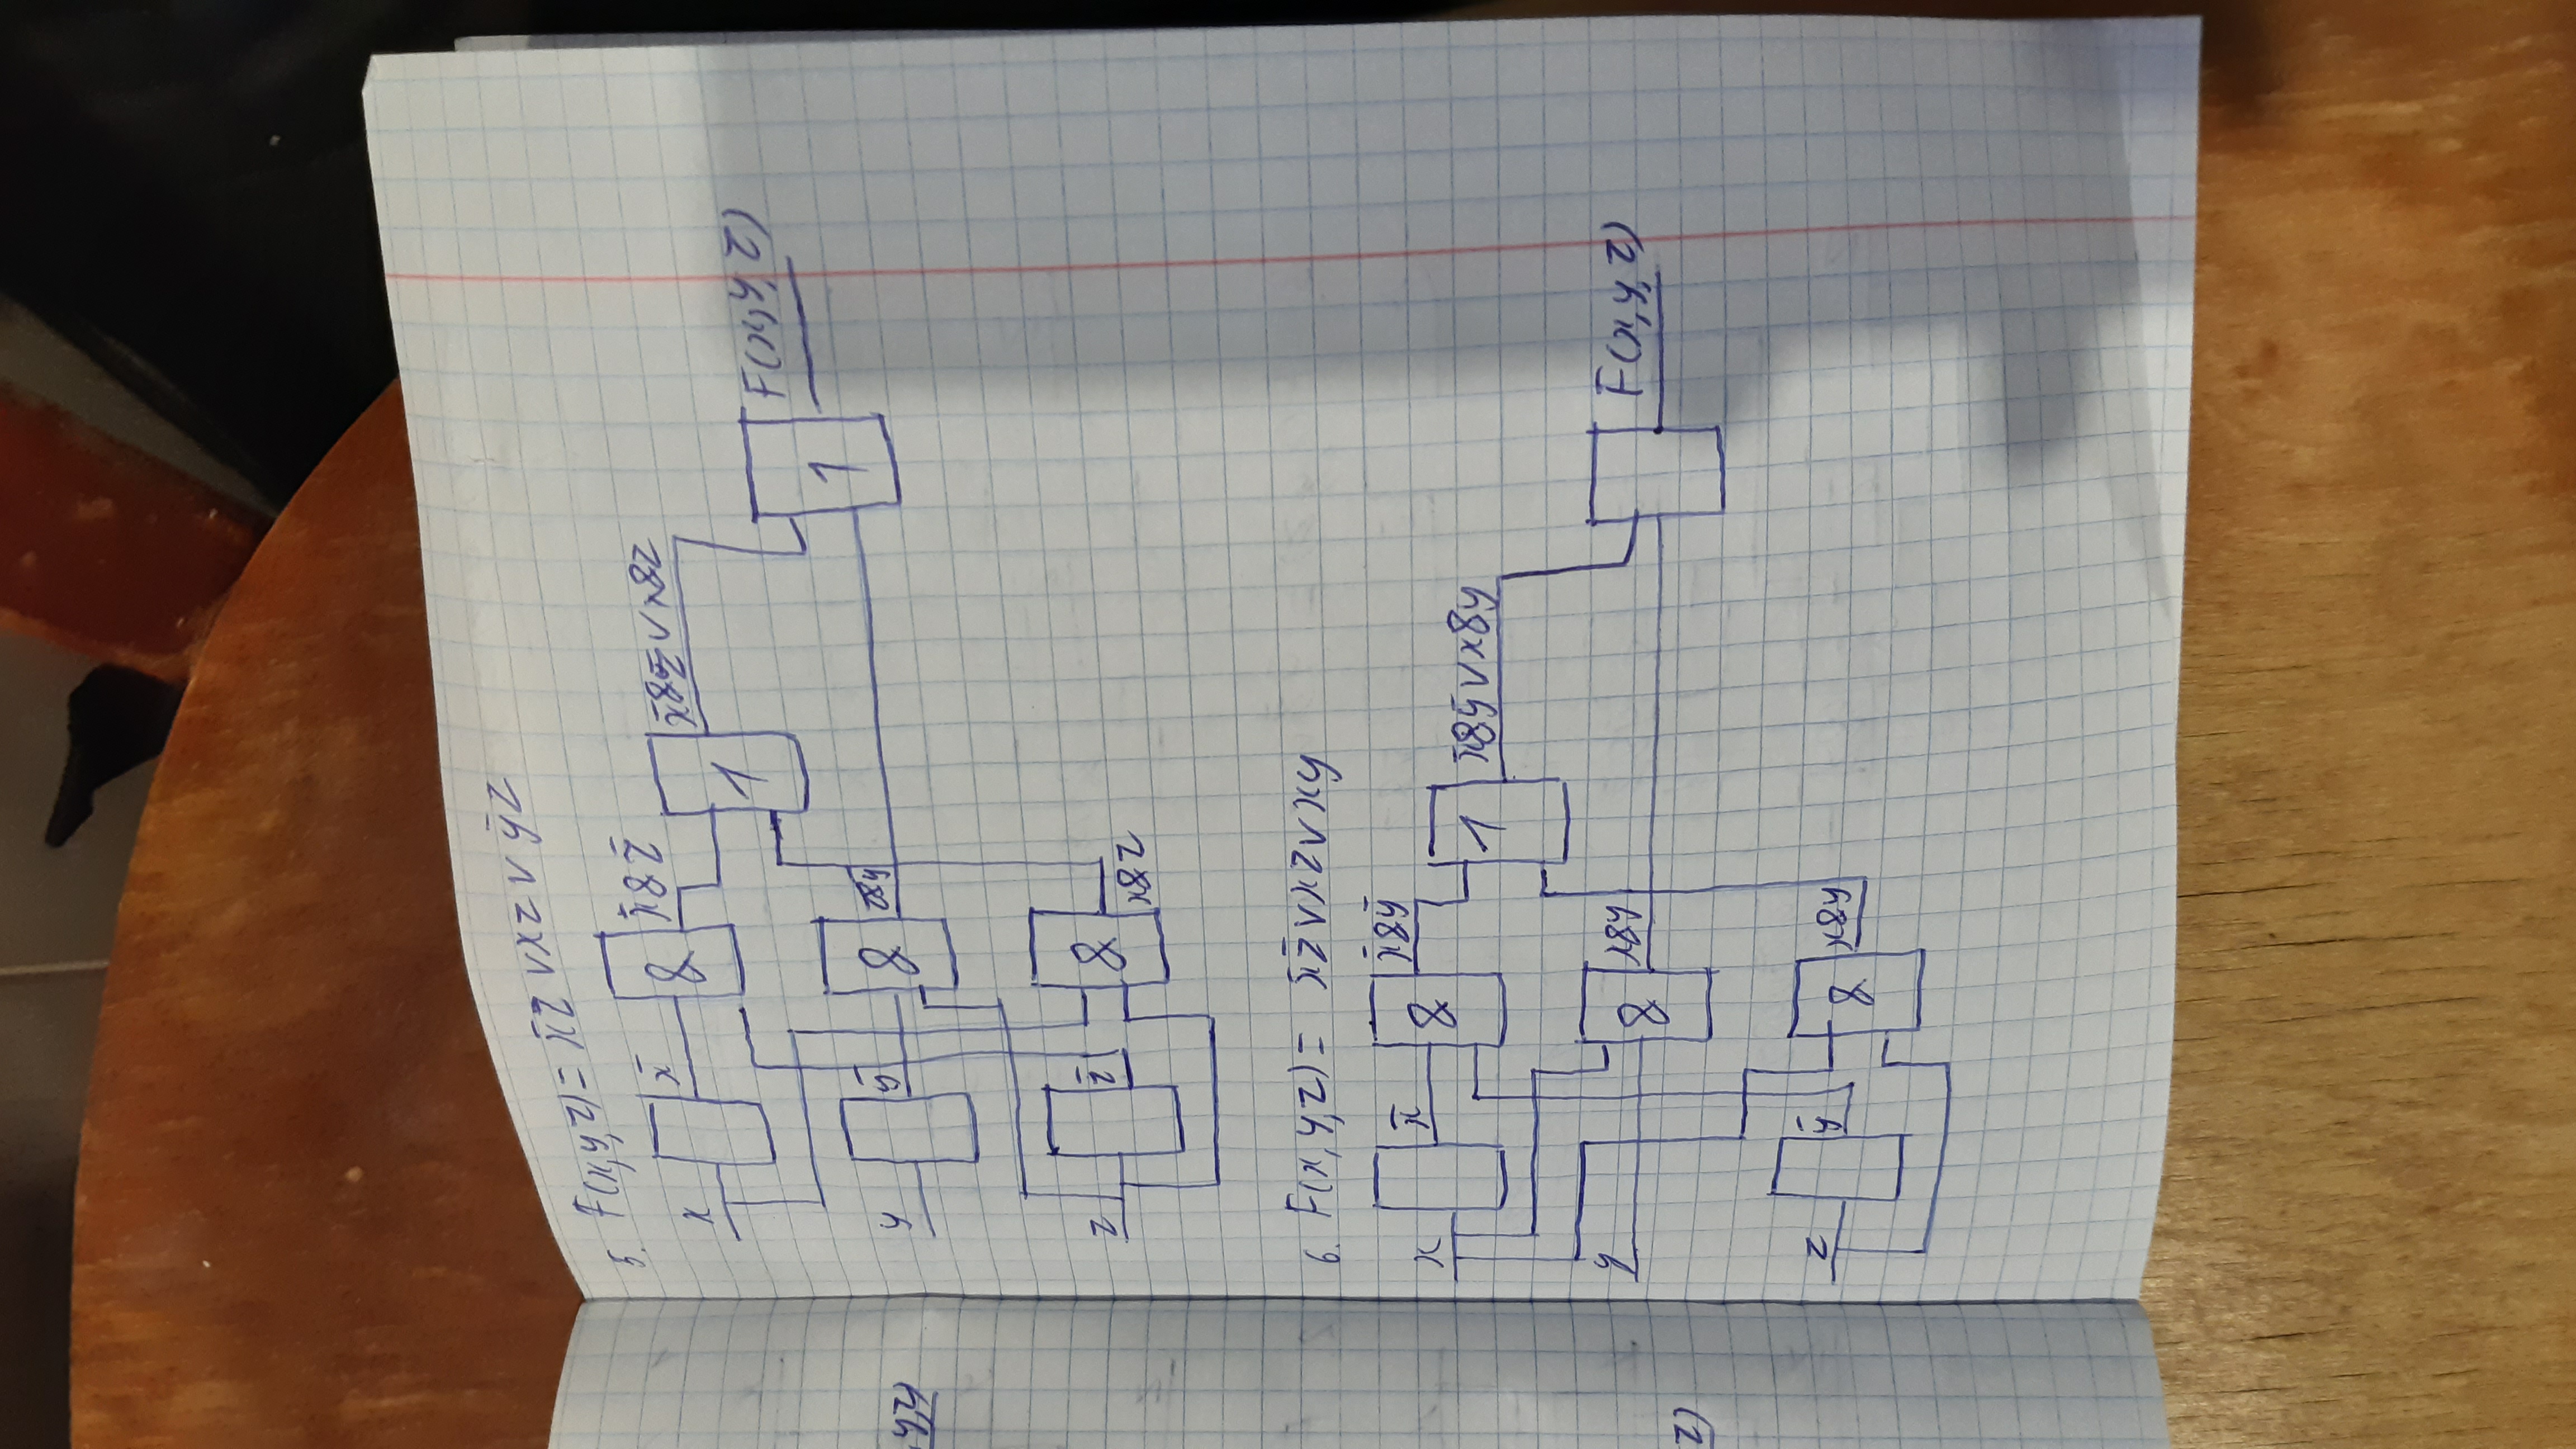 5. F(x,y,z)= x̄z̄ ∨ xz ∨ ȳz
x
x̄
&
x̄&z̄
1
x̄&z̄∨x&z
1
F(x,y,z)
y
ȳ
&
z
z̄
&
x&z
6. F(x,y,z)= x̄z̄∨xz∨xy
x
x̄
&
x̄&ȳ
1
x̄&ȳ∨x&y
F(x,y,z)
y
&
x&y
z
ȳ
&
x&y